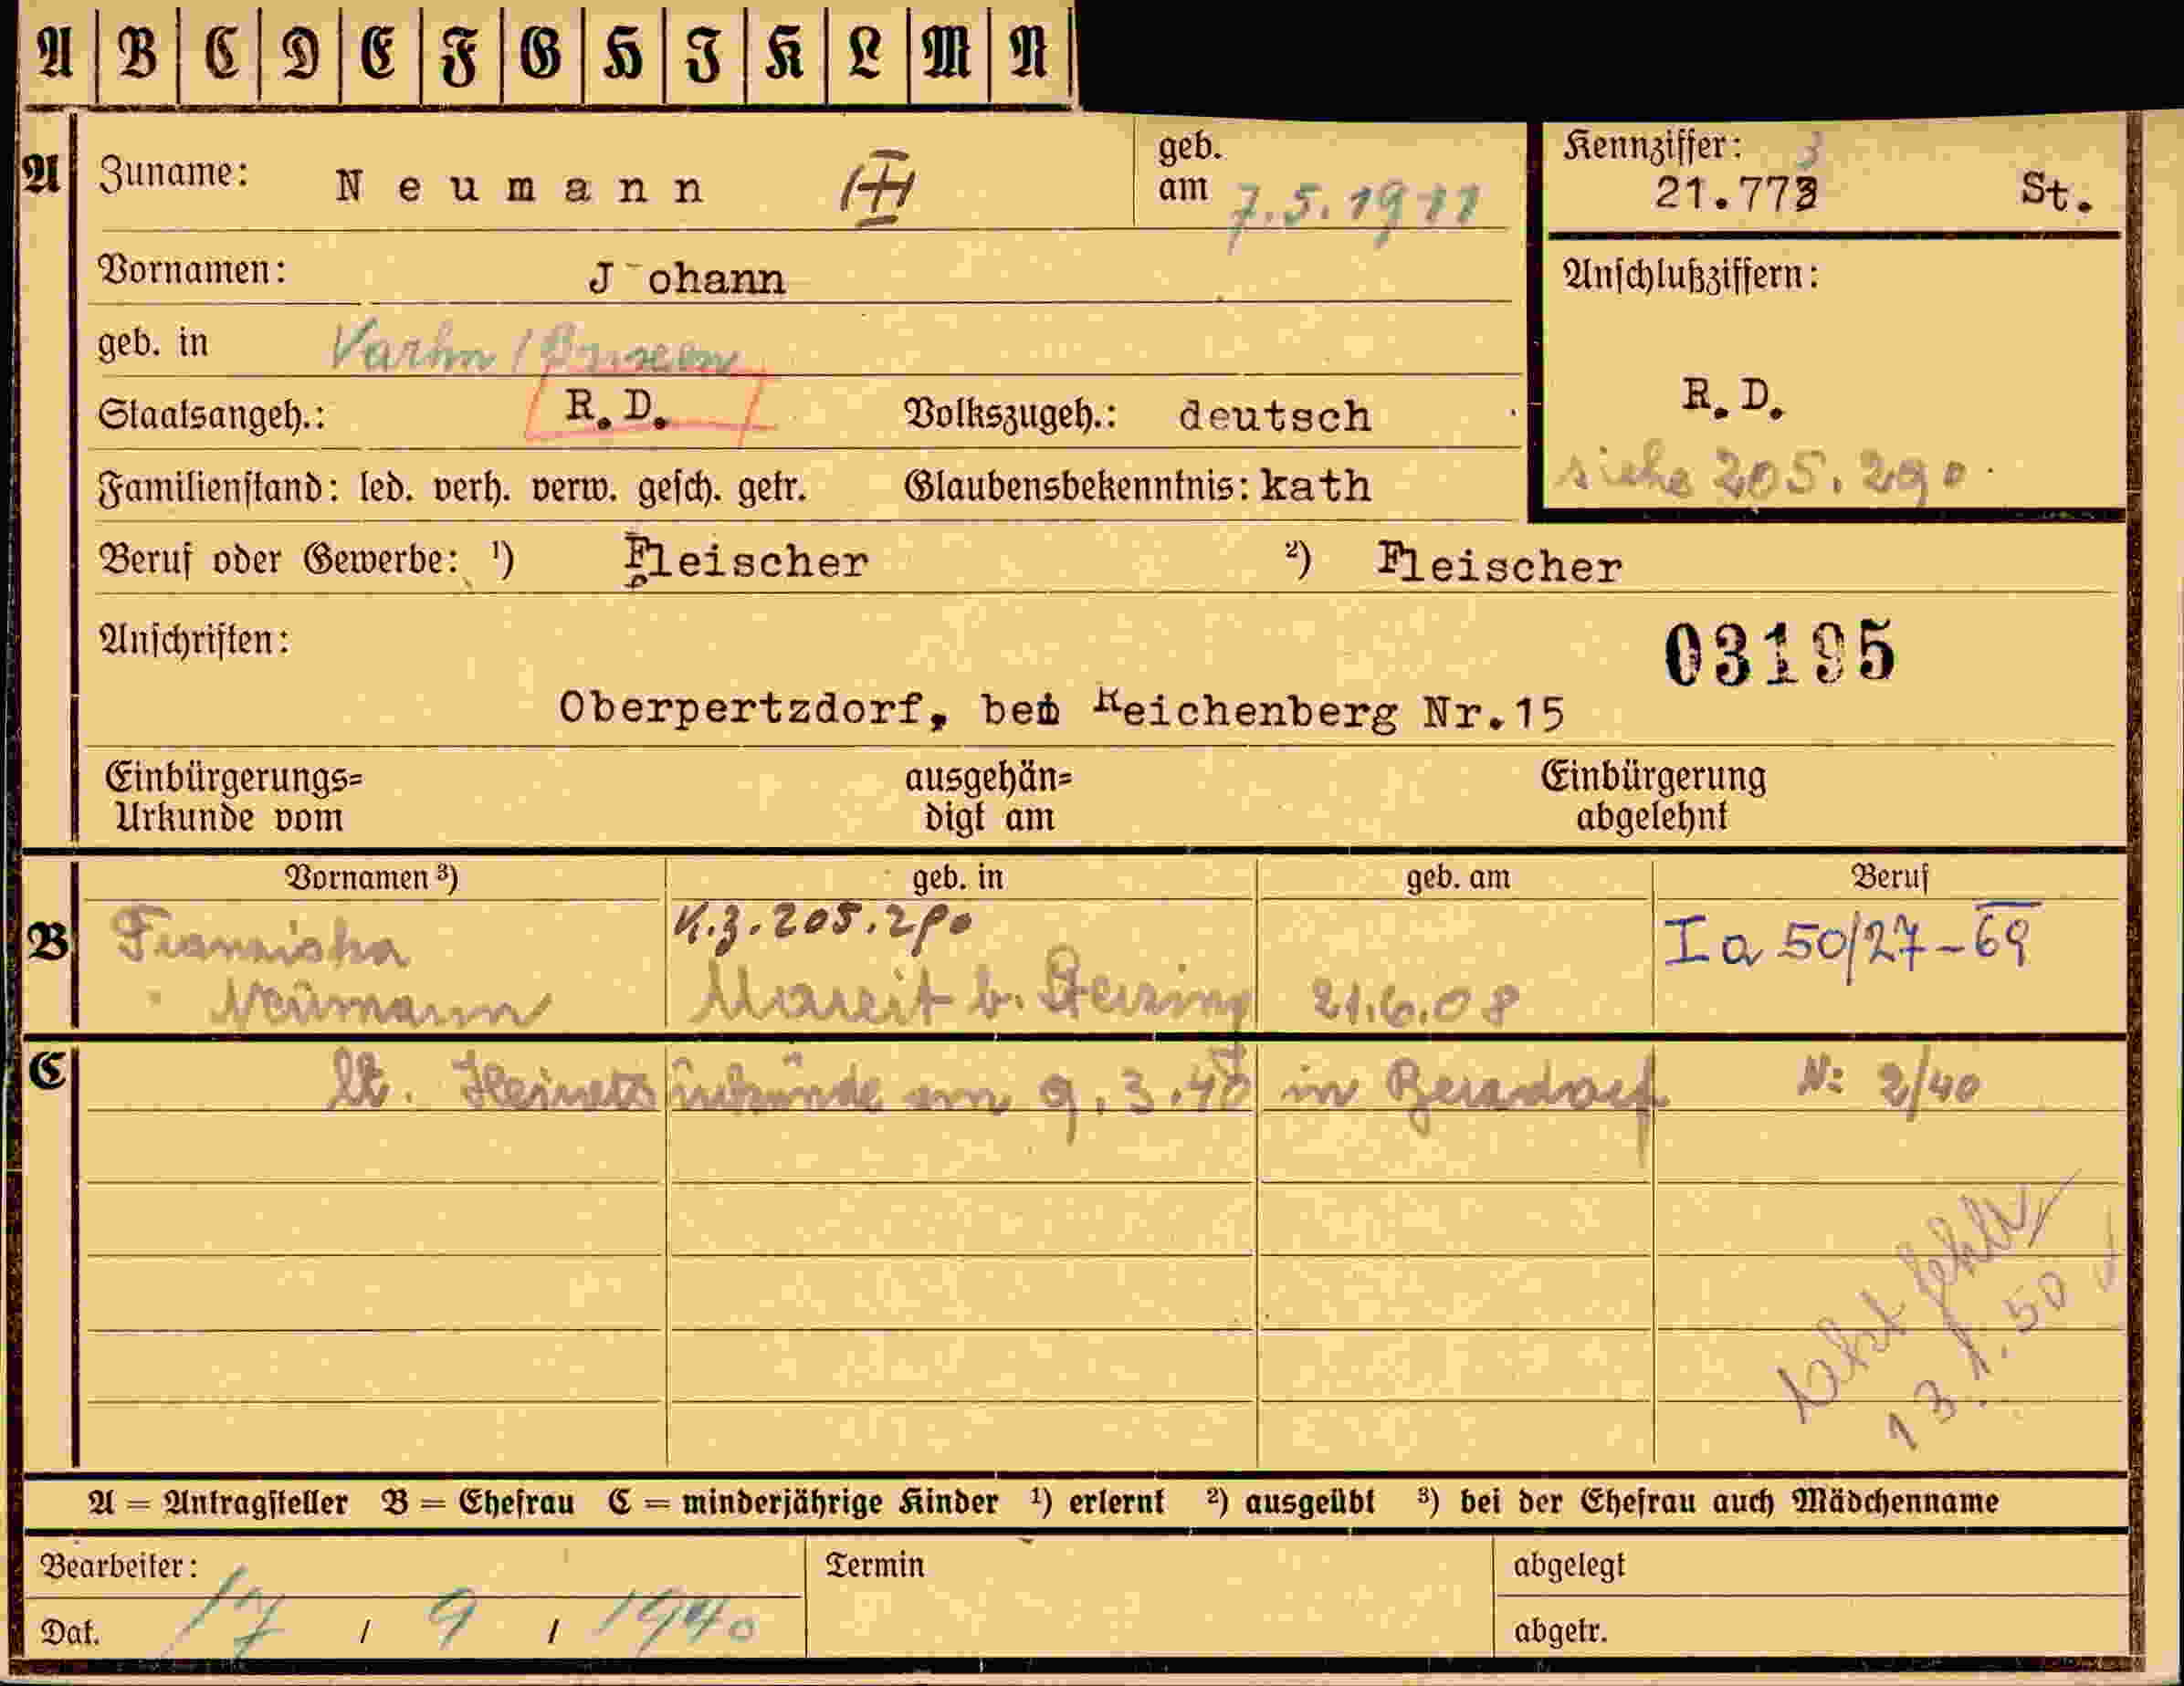 A B C D E F G H I K L M N
A Zuname: Neumann III geb. am 7.5.1911 Kennziffer: 3 21.773 St.
Vornamen: Johann Anschlußziffern:
geb. in Varhn / Brixen
Staatsangeh.: R.D. Volkszugeh.: deutsch R.D.
Familienstand: led. verh. verw. gesch. getr. Glaubensbekenntnis: kath siehe 205.290
Beruf oder Gewerbe: ¹) Fleischer ²) Fleischer
Anschriften: 03195
Oberpertzdorf, bei Reichenberg Nr.15
Einbürgerungs= ausgehän= Einbürgerung
Urkunde vom digt am abgelehnt
Vornamen ³) geb. in geb. am Beruf
B Franziska K.z. 205.290 Ia 50/27-69
Neumann Mareit b. Sterzing 21.6.08
C lt. Heiratsurkunde am 9.3.40 in N: 2/40
fehlt
13.1.50
A = Antragsteller B = Ehefrau C = minderjährige Kinder ¹) erlernt ²) ausgeübt ³) bei der Ehefrau auch Mädchenname
Bearbeiter: Termin abgelegt
Dat. 17 / 9 / 1940 abgetr.